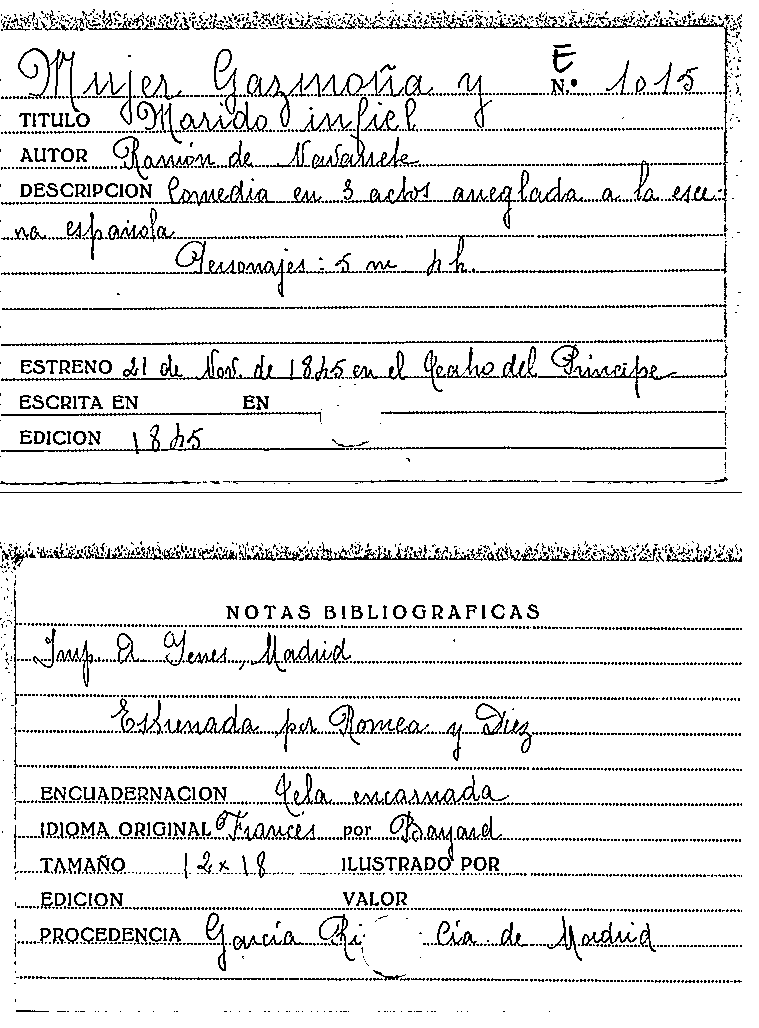 Mujer Gazmoña y E
N.º 1015
TITULO Marido infiel
AUTOR Ramón de Navarrete
DESCRIPCION Comedia en 3 actos arreglada a la esce-
na española
Personajes: 5 m 4 h.
ESTRENO 21 de Nov. de 1845 en el Teatro del Principe
ESCRITA EN EN
EDICION 1845
NOTAS BIBLIOGRAFICAS
Imp. D Yenes, Madrid
Estrenada por Romea y Diez
ENCUADERNACION Tela encarnada
IDIOMA ORIGINAL Francés por Bayard
TAMAÑO 12 x 18 ILUSTRADO POR
EDICION VALOR
PROCEDENCIA García Ri Cía de Madrid